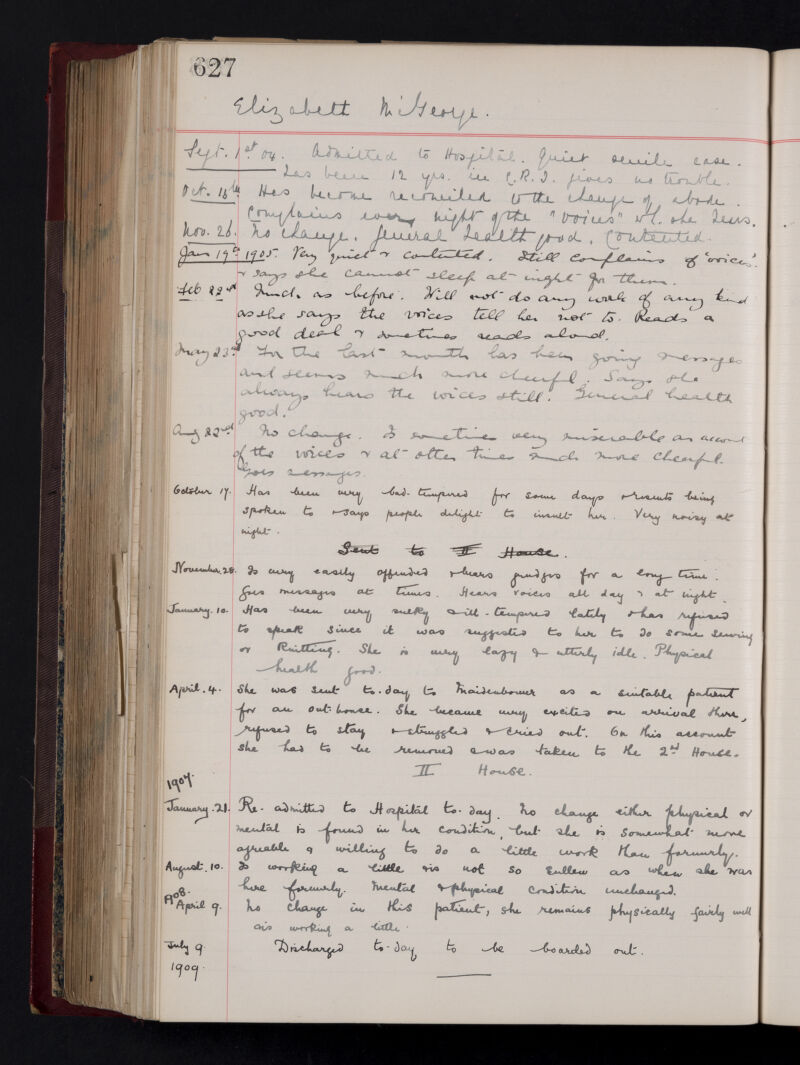 627
Elizabeth McGeorge.
Sept. 1st 04. Admitted to Hospital. Quiet senile case.
Has been 12 yrs. in C.R.I. gives no trouble.
Oct. 18th Has become reconciled to the change of abode.
Complains every night of the "voices" wh. she hears.
Nov. 26. No change. General health good. Contented.
Jan 19th 1905. Very quiet & contented. Still complains of 'voices'.
& says she cannot sleep at night for them.
Feb 22nd Much as before. Will not do any work of any kind
as she says the voices tell her not to. Reads a
good deal & sometimes reads aloud.
May 23rd For the last month has been going messages
and seems much more cheerful. Says she
always hears the voices still. General health
good.
Aug 22nd No change. Is sometimes very miserable on account
of the voices & at other times much more cheerful.
Goes messages.
October 17. Has been very bad-tempered for some days & resents being
spoken to & says people delight to insult her. Very noisy at
night.
Sent to II House.
November. 28. Is very easily offended & bears grudges for a long time.
Goes messages at times. Hears voices all day & at night.
January. 10. Has been very sulky & ill-tempered lately & has refused
to speak since it was suggested to her to do some sewing
or Knitting. She is very lazy & utterly idle. Physical
health good.
April. 4. She was sent to-day to Maidenbower as a suitable patient
for an out-house. She became very excited on arrival there,
refused to stay & struggled & cried out. On this account
she had to be removed & was taken to the 2nd House.
II House.
1907.
January. 21. Re-admitted to Hospital to-day. No change either physical or
mental is found in her condition, but she is somewhat more
agreable & willing to do a little work than formerly.
August. 10. Is working a little & is not so sullen as when she was
here formerly. Mental & physical condition unchanged.
1908.
April 9. No change in this patient, she remains physically fairly well
& is working a little.
July 9. Discharged to-day to be boarded out.
1909.